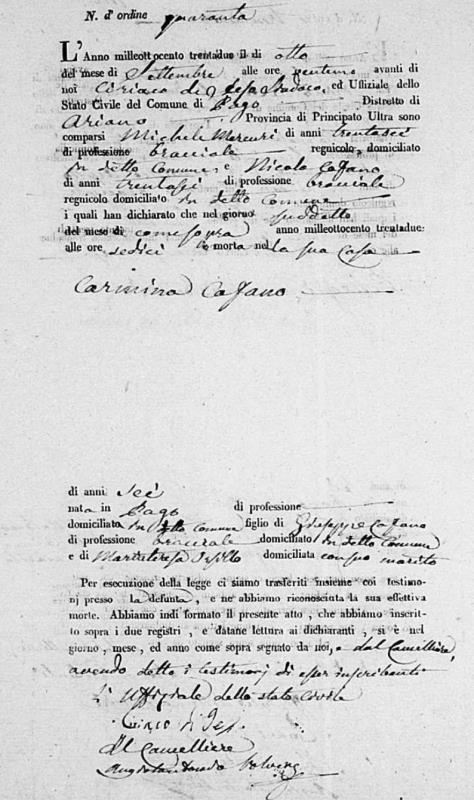 N. d'ordine quaranta
L'Anno milleottocento trentadue il dì otto
del mese di Settembre alle ore ventuno avanti di
noi Ciriaco di Sindaco, ed Uffiziale dello
Stato Civile del Comune di Pago Distretto di
Ariano Provincia di Principato Ultra sono
comparsi Michele Mercuri di anni trentasei
di professione bracciale regnicolo, domiciliato
in detto Comune, e Nicola Cafano
di anni trentasei di professione bracciale
regnicolo domiciliato in detto Comune
i quali han dichiarato che nel giorno suddetto
del mese di come sopra anno milleottocento trentadue
alle ore sedici è morta nella sua casa
Carmina Cafano
di anni sei
nata in Pago di professione
domiciliato in detto Comune figlio di Giuseppe Cafano
di professione bracciale domiciliato in detto Comune
e di Mariateresa domiciliata con suo marito
Per esecuzione della legge ci siamo trasferiti insieme coi testimo-
nj presso la defunta, e ne abbiamo riconosciuta la sua effettiva
morte. Abbiamo indi formato il presente atto, che abbiamo inscrit-
to sopra i due registri, e datane lettura ai dichiaranti, si è nel
giorno, mese, ed anno come sopra segnato da noi, e dal Cancelliere,
avendo detto i testimonj di esser inscribenti
L'Uffiziale dello stato civile
Il Cancelliere